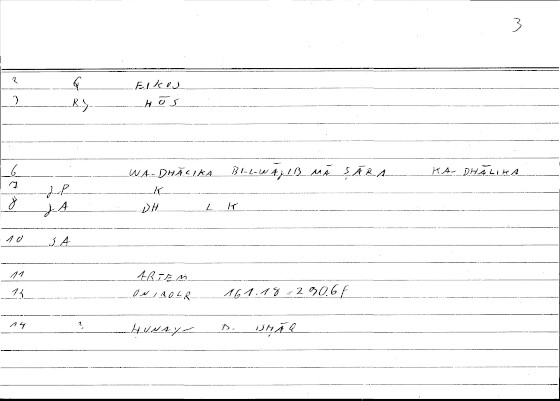 3
2 G EIKOS
3 RJ HŌS
6 WA-DHĀLIKA BI-L-WĀJIB MĀ ṢĀRA KA-DHĀLIKA
7 JP K
8 JA DH L K
10 SA
11 ARTEM
12 ONIROCR 161.18 = 290.6f
14 ? HUNAY B. ISḤĀQ